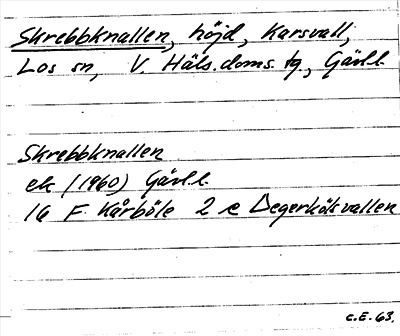 Skrebbknallen, höjd, Karsvall,
Los sn, V. Häls. doms. tg, Gävl.l.
Skrebbknallen
ek (1960) Gävl.l.
16 F Kårböle 2 e Degerkölsvallen
C.E. 63.